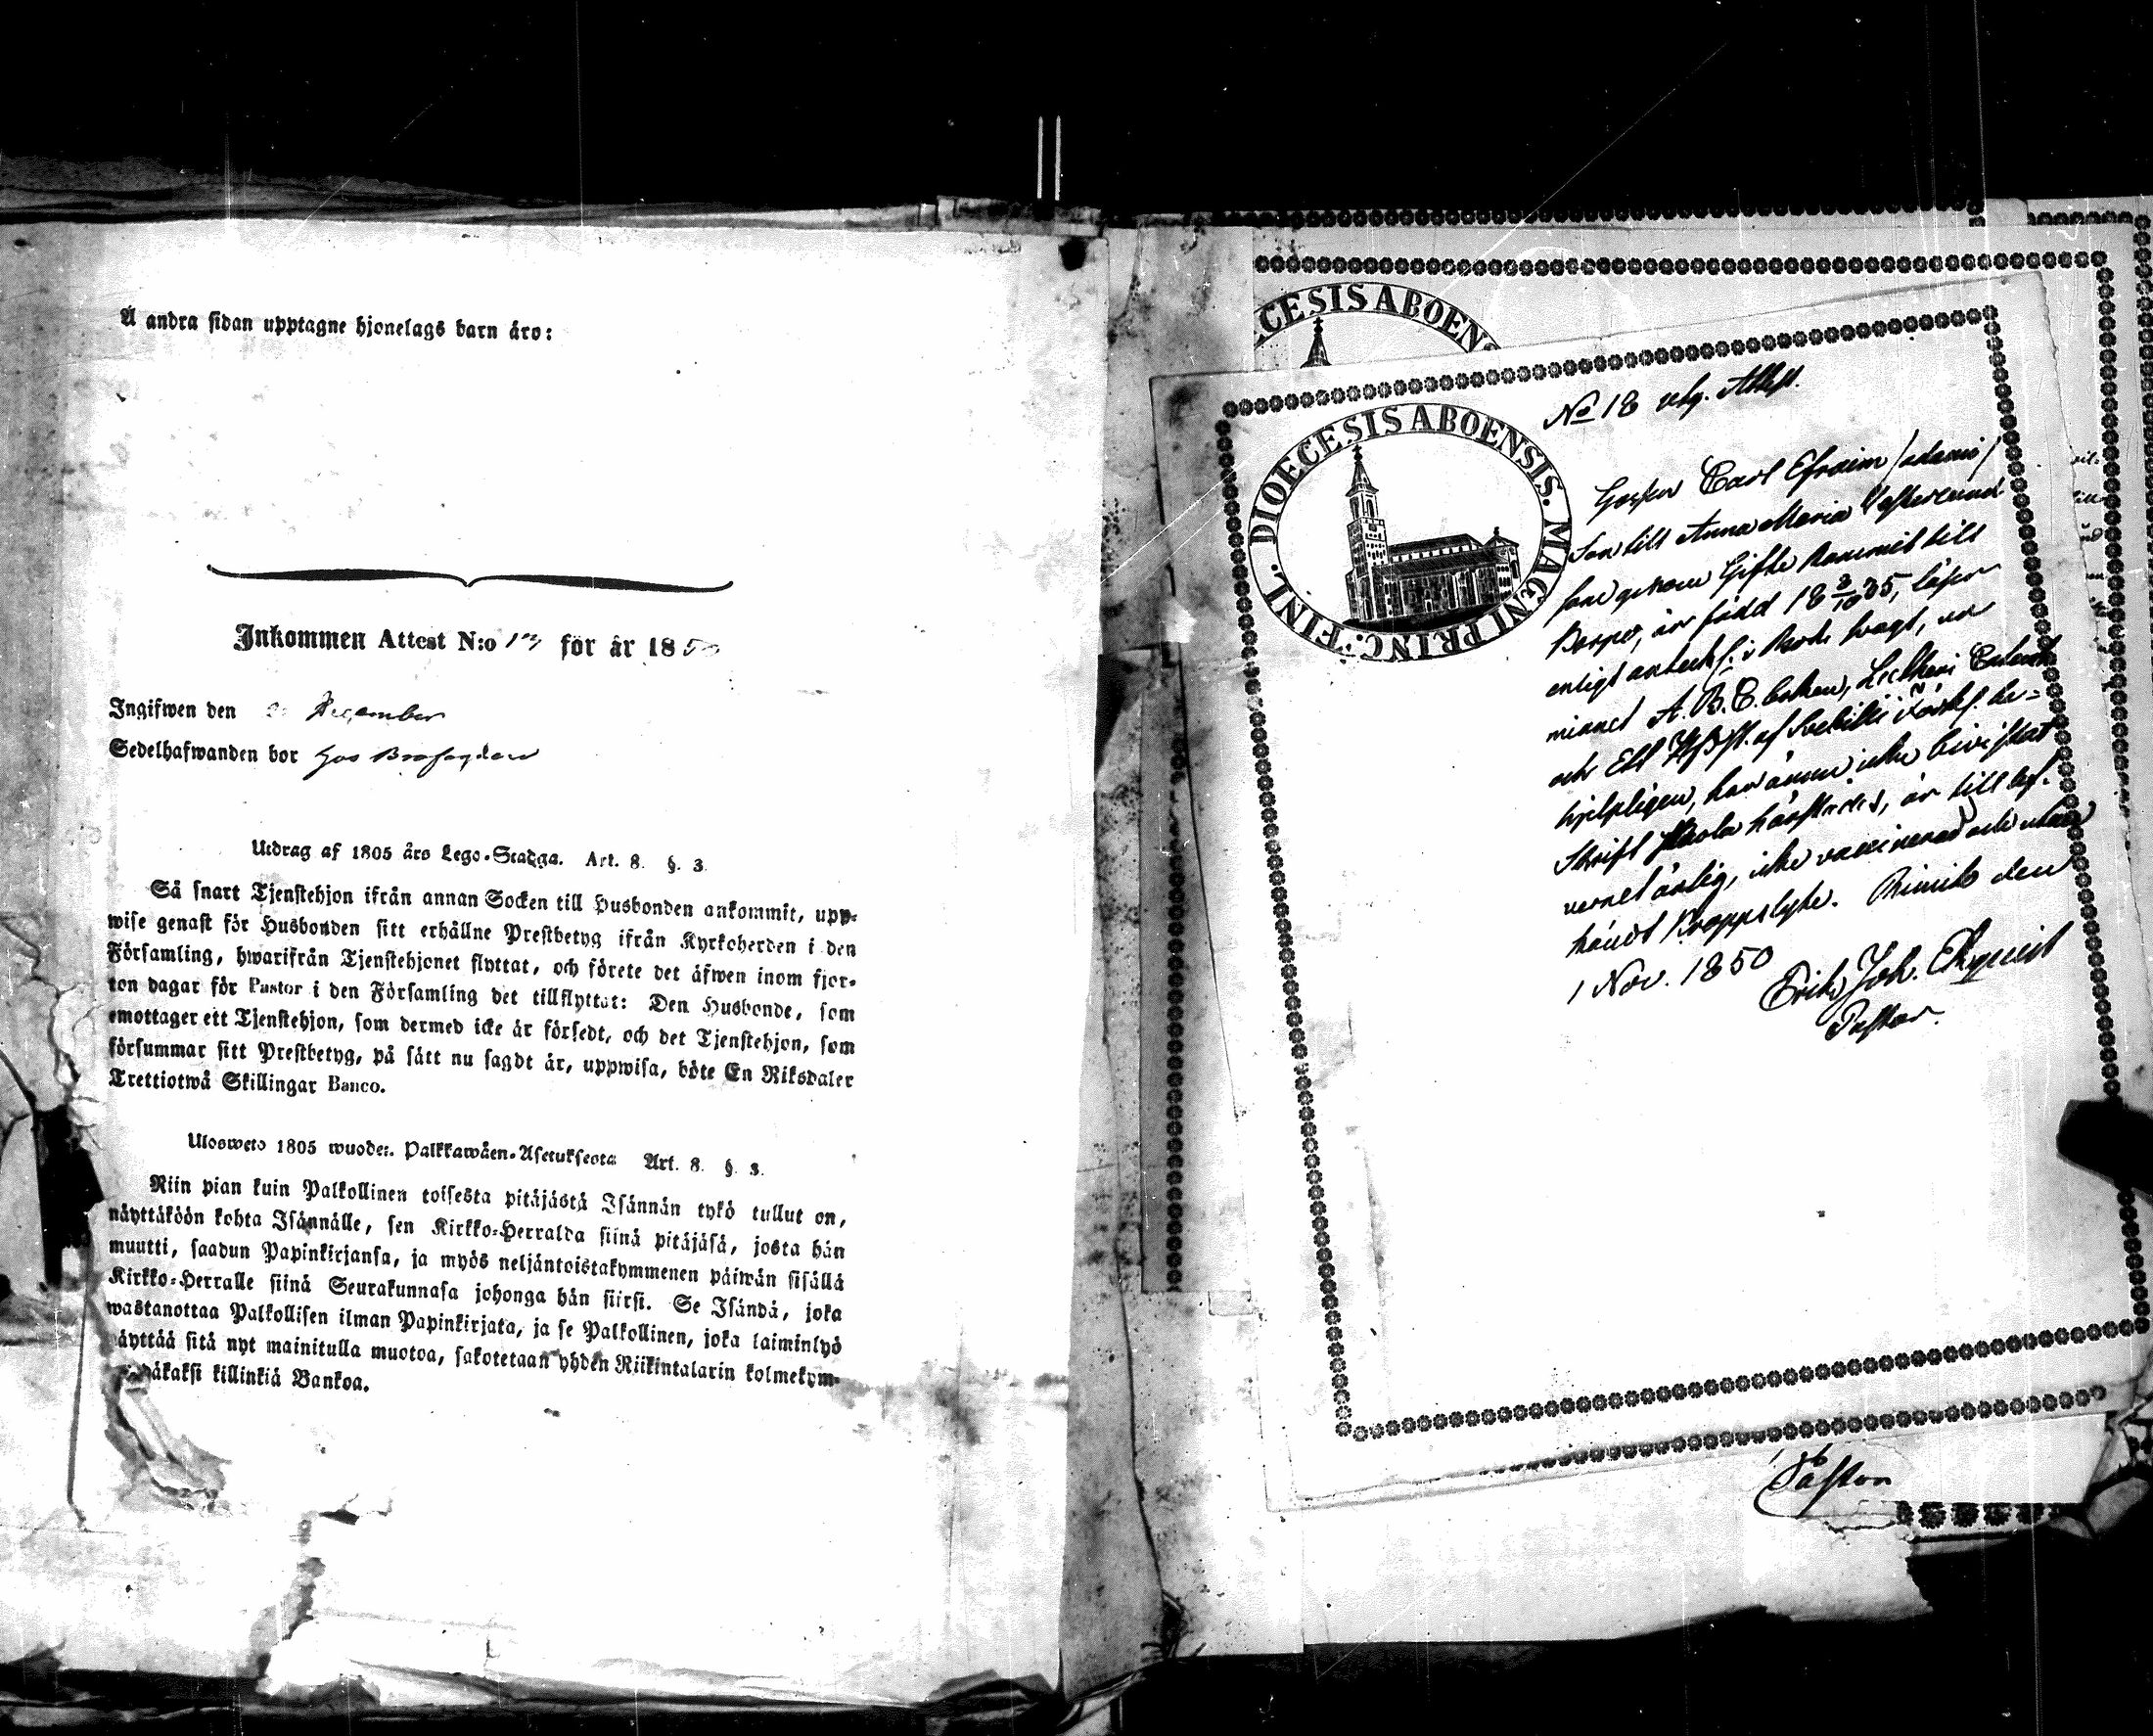 Å andra sidan upptagne hjonelags barn äro:
Inkommen Attest N:o 13 för år 1850
Ingifwen den December
Sedelhafwanden bor hos
Utdrag af 1805 års Lego-Stadga. Art. 8. §. 3.
Så snart Tjenstehjon ifrån annan Socken till Husbonden ankommit, upp-
wise genast för Husbonden sitt erhållne Prestbetyg ifrån Kyrkoherden i den
Församling, hwarifrån Tjenstehjonet flyttat, och förete det äfwen inom fjor-
ton dagar för Pastor i den Församling det tillflyttat: Den Husbonde, som
emottager ett Tjenstehjon, som dermed icke är försedt, och det Tjenstehjon, som
försummar sitt Prestbetyg, på sätt nu sagdt är, uppwisa, böte En Riksdaler
Trettiotwå Skillingar Banco.
Ulosweto 1805 wuoden Palkkawäen-Asetuksesta Art. 8. §. 3.
Niin pian kuin Palkollinen toisesta pitäjästä Isännän tykö tullut on,
näyttäköön kohta Isännälle, sen Kirkko-Herralda siinä pitäjäsä, josta hän
muutti, saadun Papinkirjansa, ja myös neljäntoistakymmenen päiwän sisällä
Kirkko-Herralle siinä Seurakunnasa johonga hän siirsi. Se Isändä, joka
wastanottaa Palkollisen ilman Papinkirjata, ja se Palkollinen, joka laiminlyö
näyttää sitä nyt mainitulla muotoa, sakotetaan yhden Riikintalarin kolmekym-
kaksi killinkiä Bankoa.
DIOECESIS ABOEN
DIOECESIS ABOENSIS. MAGNI PRINC: FINL.
No 18 utg. Attest.
Gossen Carl Efraim
Son till Anna Maria Westerlund
Gifte till
är född 18 3/10 35, läser
enligt i
minnet A.B.C. boken, Luttheri
och
hjelpligen, har ännu icke bevistat
Skrift Skola härstädes, är till
icke vaccinerad och utan
händt Kroppslyte. Rimito den
1 Nov. 1850
Erik Joh. Ekqvist
Pastor.
Pastor